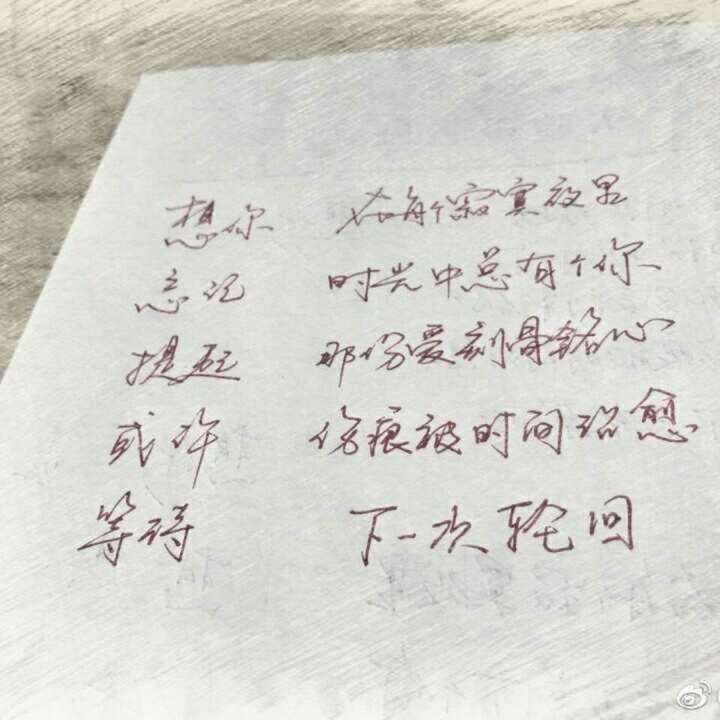 想你 在每个寂寞夜里
忘记 时光中总有个你
提起 那份爱刻骨铭心
或许 伤痕被时间治愈
等待 下一次轮回